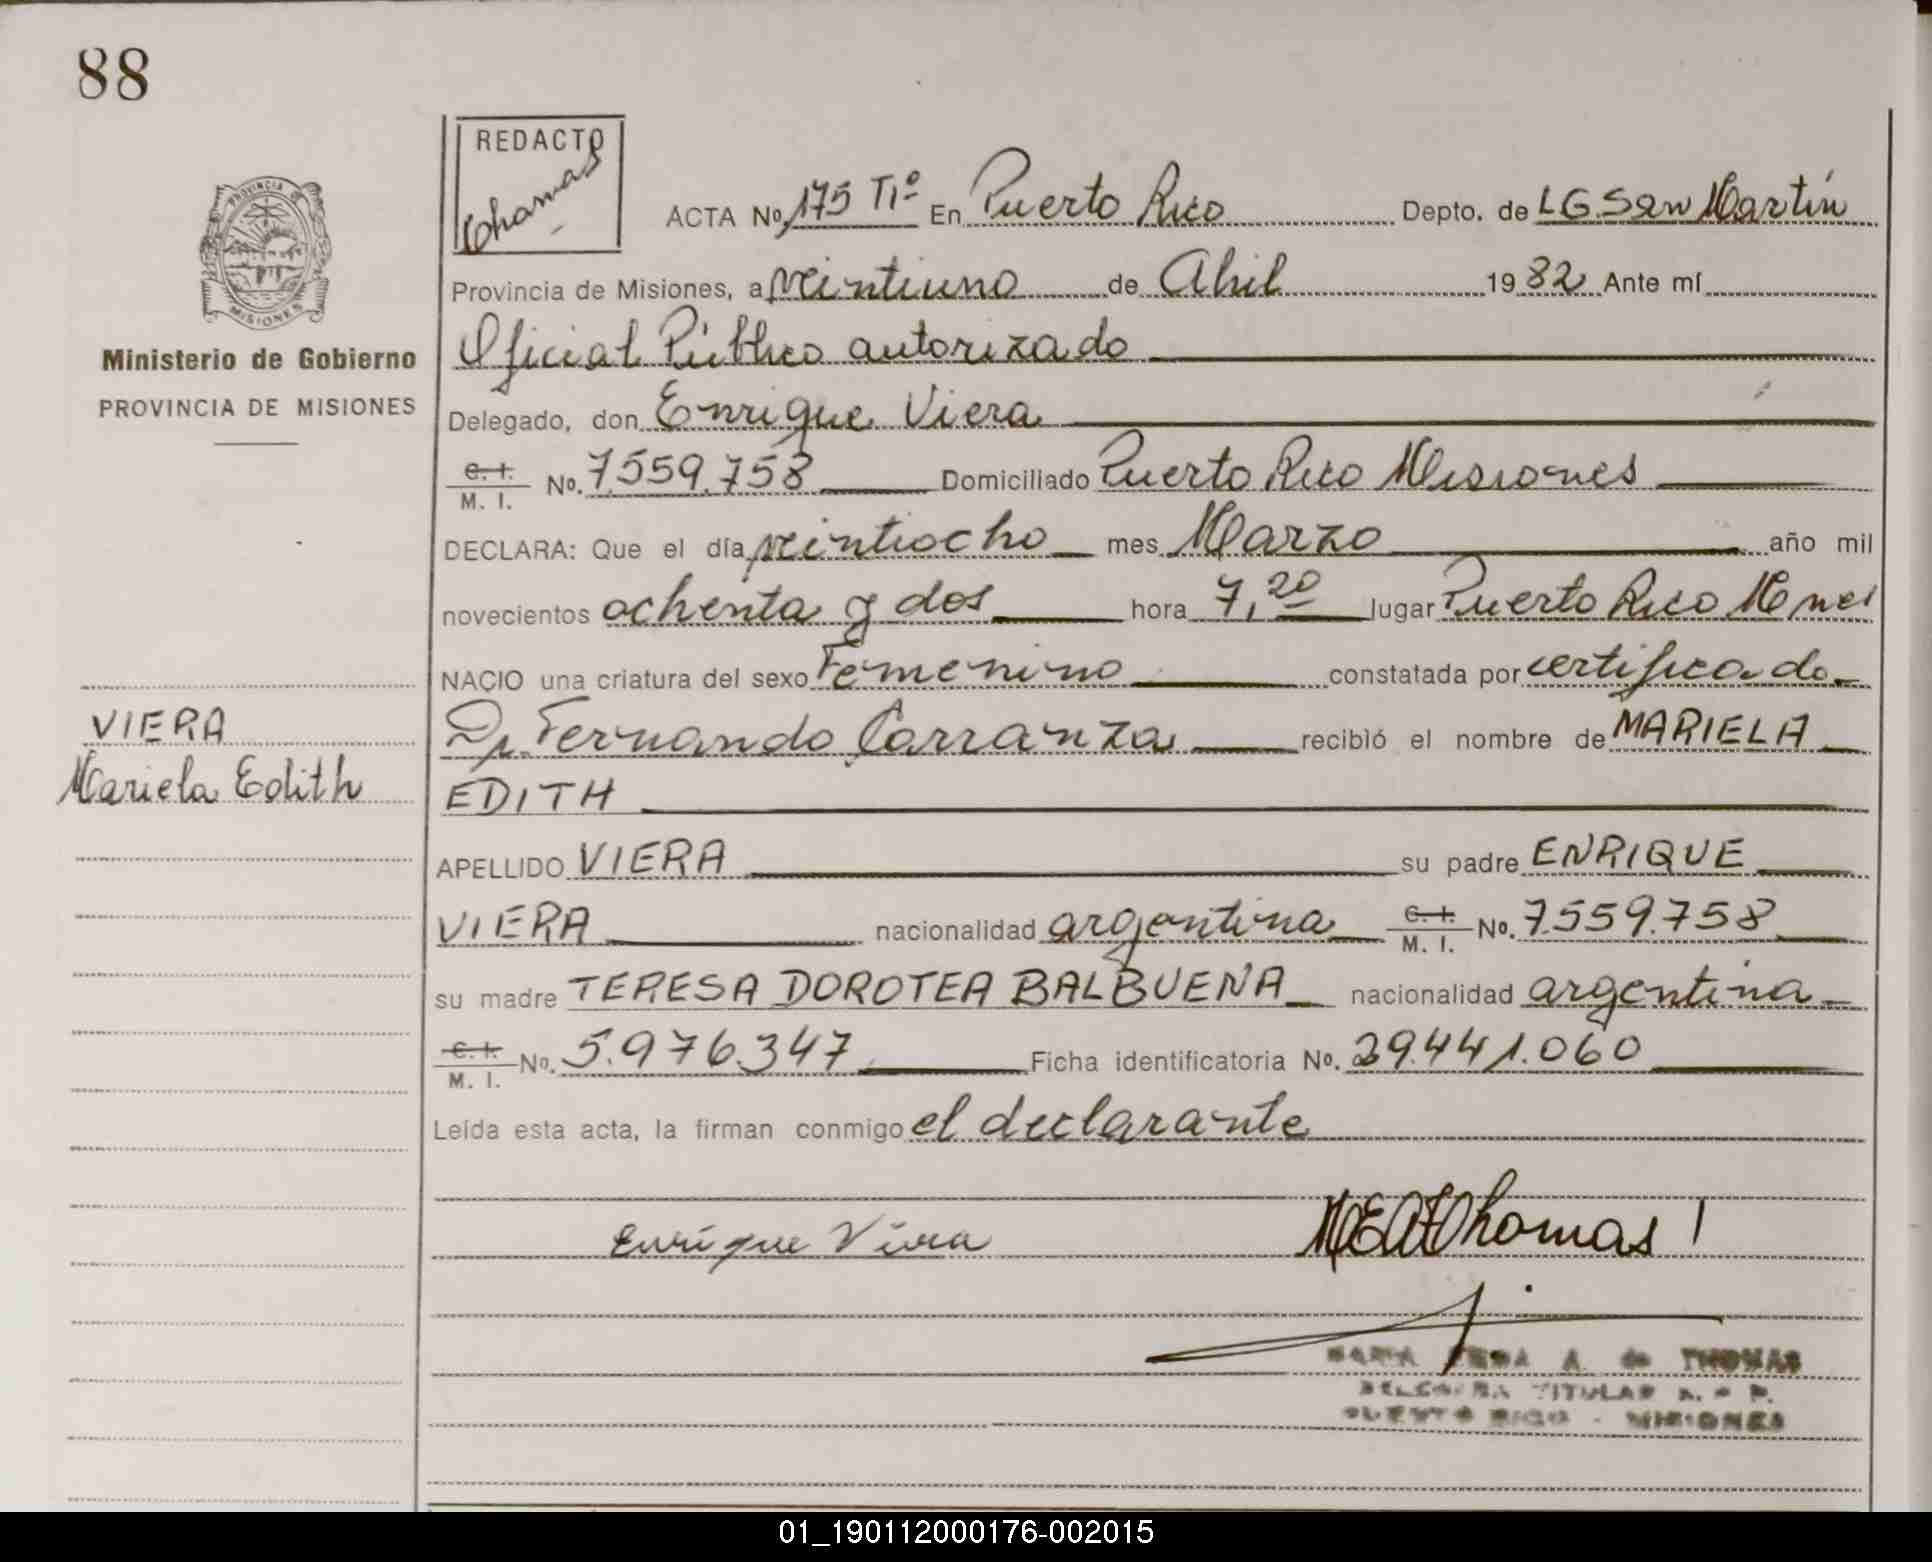 88
REDACTO
Thomas
PROVINCIA DE
MISIONES
Ministerio de Gobierno
PROVINCIA DE MISIONES
ACTA No. 175 TIº En Puerto Rico Depto. de L G. San Martín
Provincia de Misiones, a veintiuno de Abril 19 82 Ante mí
Oficial Público autorizado
Delegado, don Enrique Viera
C. I. M. I. No. 7.559.758 Domiciliado Puerto Rico Misiones
DECLARA: Que el día veintiocho mes Marzo año mil
novecientos ochenta y dos hora 7,20 lugar Puerto Rico Mnes
NACIO una criatura del sexo Femenino constatada por certificado
Dr. Fernando Carranza recibió el nombre de MARIELA
EDITH
VIERA
Mariela Edith
APELLIDO VIERA su padre ENRIQUE
VIERA nacionalidad argentina C. I. M. I. No. 7.559.758
su madre TERESA DOROTEA BALBUENA nacionalidad argentina
C. I. M. I. No. 5.976.347 Ficha identificatoria No. 29.441.060
Leída esta acta, la firman conmigo el declarante
Enrique Viera
Thomas
MARIA A. de THOMAS
TITULAR
PUERTO RICO - MISIONES
01_190112000176-002015